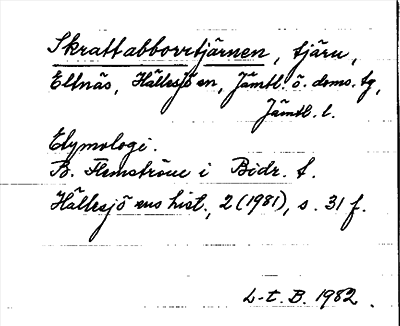 Skrattabborrtjärnen, tjärn,
Ellnäs, Hällesjö sn, Jämtl. ö. doms. tg,
Jämtl. l.
Etymologi.
B. Flemström i Bidr. t.
Hällesjö sns hist., 2 (1981), s. 31 f.
L-t. B. 1982.